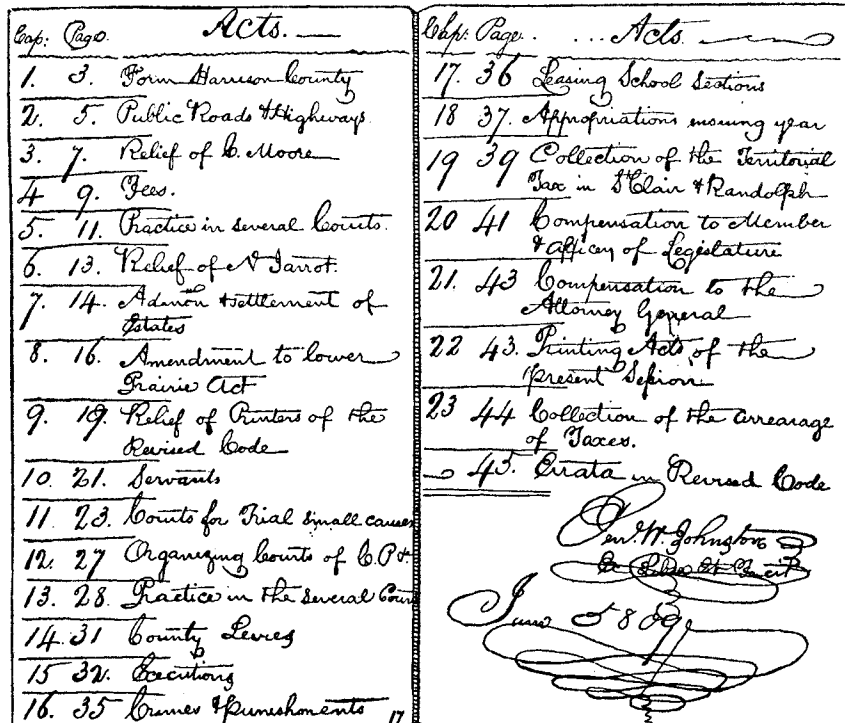 Cap: Page. Acts.
1. 3. Form Harrison County
2. 5. Public Roads & Highways.
3. 7. Relief of C. Moore
4 9. Fees.
5. 11. Practice in several Courts.
6. 13. Relief of N Jarrot.
7. 14. Admon & settlement of
Estates
8. 16. Amendment to lower
Prairie Act
9. 19. Relief of Printers of the
Revised Code
10. 21. Servants
11. 23. Courts for Trial small causes
12. 27 Organizing Courts of C. P.
13. 28. Practice in the several Cour
14. 31 County Levies
15 32. Executions
16. 35 Crimes & punishments
17
Chp: Page. Acts.
17. 36 Leasing School Sections
18 37. Appropriations ensuing year
19 39 Collection of the Territorial
Tax in St Clair & Randolph
20 41 Compensation to Member
& officey of Legislature
21. 43 Compensation to the
Attorney General
22 43. Printing Acts of the
present Session
23 44 Collection of the arrearage
of Taxes.
45. Errata in Revised Code
Jen: W. Johnston
June 5 809